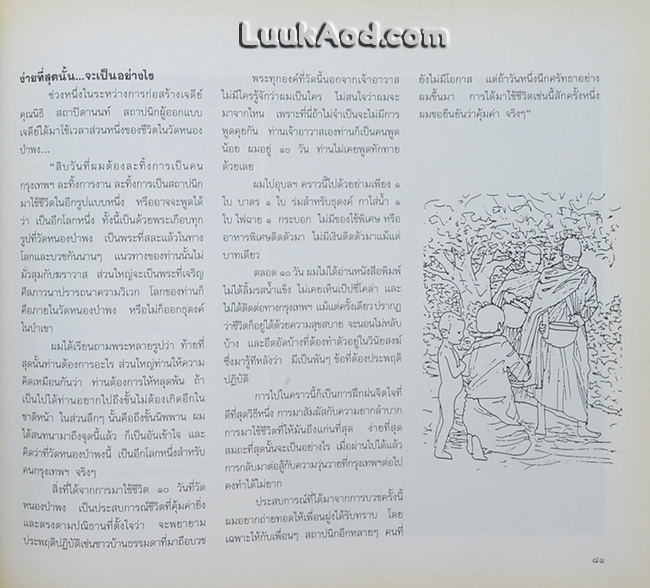 LuukAod.com
ง่ายที่สุดนั้น...จะเป็นอย่างไร
ช่วงหนึ่งในระหว่างการก่อสร้างเจดีย์
คุณนิธิ สถาปิตานนท์ สถาปนิกผู้ออกแบบ
เจดีย์ได้มาใช้เวลาส่วนหนึ่งของชีวิตในวัดหนอง
ป่าพง...
"สิบวันที่ผมต้องละทิ้งการเป็นคน
กรุงเทพฯ ละทิ้งการงาน ละทิ้งการเป็นสถาปนิก
มาใช้ชีวิตในอีกรูปแบบหนึ่ง หรืออาจจะพูดได้
ว่า เป็นอีกโลกหนึ่ง ทั้งนี้เป็นด้วยพระเกือบทุก
รูปที่วัดหนองป่าพง เป็นพระที่สละแล้วในทาง
โลกและบวชกันนานๆ แนวทางของท่านนั้นไม่
มั่วสุมกับฆราวาส ส่วนใหญ่จะเป็นพระที่เจริญ
ศีลภาวนาปรารถนาความวิเวก โลกของท่านก็
คือภายในวัดหนองป่าพง หรือไม่ก็ออกธุดงค์
ในป่าเขา
ผมได้เรียนถามพระหลายรูปว่า ท้ายที่
สุดนั้นท่านต้องการอะไร ส่วนใหญ่ท่านให้ความ
คิดเหมือนกันว่า ท่านต้องการให้หลุดพ้น ถ้า
เป็นไปได้ท่านอยากไปถึงขั้นไม่ต้องเกิดอีกใน
ชาติหน้า ในส่วนลึกๆ นั้นคือถึงขั้นนิพพาน ผม
ได้สนทนามาถึงจุดนี้แล้ว ก็เป็นอันเข้าใจ และ
คิดว่าที่วัดหนองป่าพงนี้ เป็นอีกโลกหนึ่งสำหรับ
คนกรุงเทพฯ จริงๆ
สิ่งที่ได้จากการมาใช้ชีวิต ๑๐ วันที่วัด
หนองป่าพง เป็นประสบการณ์ชีวิตที่คุ้มค่ายิ่ง
และตรงตามปณิธานที่ตั้งใจว่า จะพยายาม
ประพฤติปฏิบัติเช่นชาวบ้านธรรมดาที่มาถือบวช
พระทุกองค์ที่วัดนี้นอกจากเจ้าอาวาส
ไม่มีใครรู้จักว่าผมเป็นใคร ไม่สนใจว่าผมจะ
มาจากไหน เพราะที่นี่ถ้าไม่จำเป็นจะไม่มีการ
พูดคุยกัน ท่านเจ้าอาวาสเองท่านก็เป็นคนพูด
น้อย ผมอยู่ ๑๐ วัน ท่านไม่เคยพูดทักทาย
ด้วยเลย
ผมไปอุบลฯ คราวนี้ไปด้วยย่ามเพียง ๑
ใบ บาตร ๑ ใบ ร่มสำหรับธุดงค์ กาใส่น้ำ ๑
ใบ ไฟฉาย ๑ กระบอก ไม่มีของใช้พิเศษ หรือ
อาหารพิเศษติดตัวมา ไม่มีเงินติดตัวมาแม้แต่
บาทเดียว
ตลอด ๑๐ วัน ผมไม่ได้อ่านหนังสือพิมพ์
ไม่ได้ลิ้มรสน้ำแข็ง ไม่เคยเห็นเป๊ปซี่โคล่า และ
ไม่ได้ติดต่อทางกรุงเทพฯ แม้แต่ครั้งเดียวปรากฏ
ว่าชีวิตก็อยู่ได้ด้วยความสุขสบาย จะนอนไม่หลับ
บ้าง และอึดอัดบ้างที่ต้องทำตัวอยู่ในวินัยสงฆ์
ซึ่งมารู้ทีหลังว่า มีเป็นพันๆ ข้อที่ต้องประพฤติ
ปฏิบัติ
การไปในคราวนี้ก็เป็นการฝึกฝนจิตใจที่
ดีที่สุดวิธีหนึ่ง การมาสัมผัสกับความยากลำบาก
การมาใช้ชีวิตที่ให้มันถึงแก่นที่สุด ง่ายที่สุด
สมถะที่สุดนั้นจะเป็นอย่างไร เมื่อผ่านไปได้แล้ว
การกลับมาต่อสู้กับความวุ่นวายที่กรุงเทพฯต่อไป
คงทำได้ไม่ยาก
ประสบการณ์ที่ได้มาจากการบวชครั้งนี้
ผมอยากถ่ายทอดให้เพื่อนฝูงได้รับทราบ โดย
เฉพาะให้กับเพื่อนๆ สถาปนิกอีกหลายๆ คนที่
ยังไม่มีโอกาส แต่ถ้าวันหนึ่งนึกศรัทธาอย่าง
ผมขึ้นมา การได้มาใช้ชีวิตเช่นนี้สักครั้งหนึ่ง
ผมขอยืนยันว่าคุ้มค่า จริงๆ"
๘๑